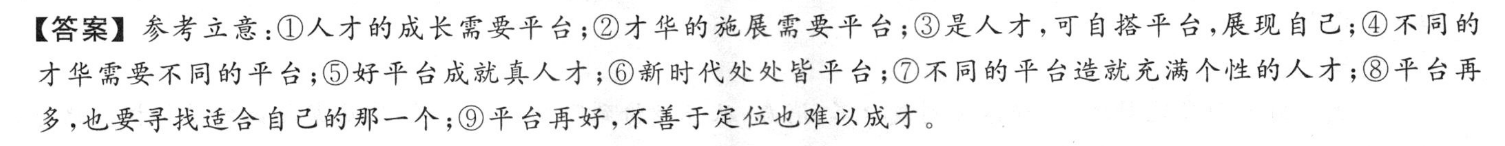 【答案】参考立意:①人才的成长需要平台;②才华的施展需要平台;③是人才,可自搭平台,展现自己;④不同的
才华需要不同的平台;⑤好平台成就真人才;⑥新时代处处皆平台;⑦不同的平台造就充满个性的人才;⑧平台再
多,也要寻找适合自己的那一个;⑨平台再好,不善于定位也难以成才。